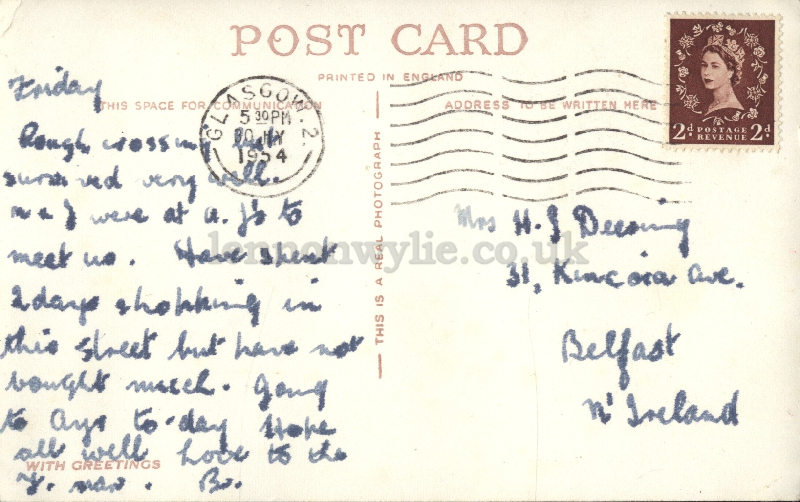 POST CARD
PRINTED IN ENGLAND
THIS SPACE FOR COMMUNICATION
ADDRESS TO BE WRITTEN HERE
THIS IS A REAL PHOTOGRAPH
GLASGOW. 2.
5 30 PM
1954
2d POSTAGE REVENUE 2d
Friday
Rough crossing but
survived very well.
m & J were at a. J's to
meet us. Have spent
2 days shopping in
this street but have not
bought much. Going
to Ayr to-day Hope
all well Love to the
WITH GREETINGS
Mrs H. J Deering
31, Kincora Ave.
Belfast
N' Ireland
lennonwylie.co.uk